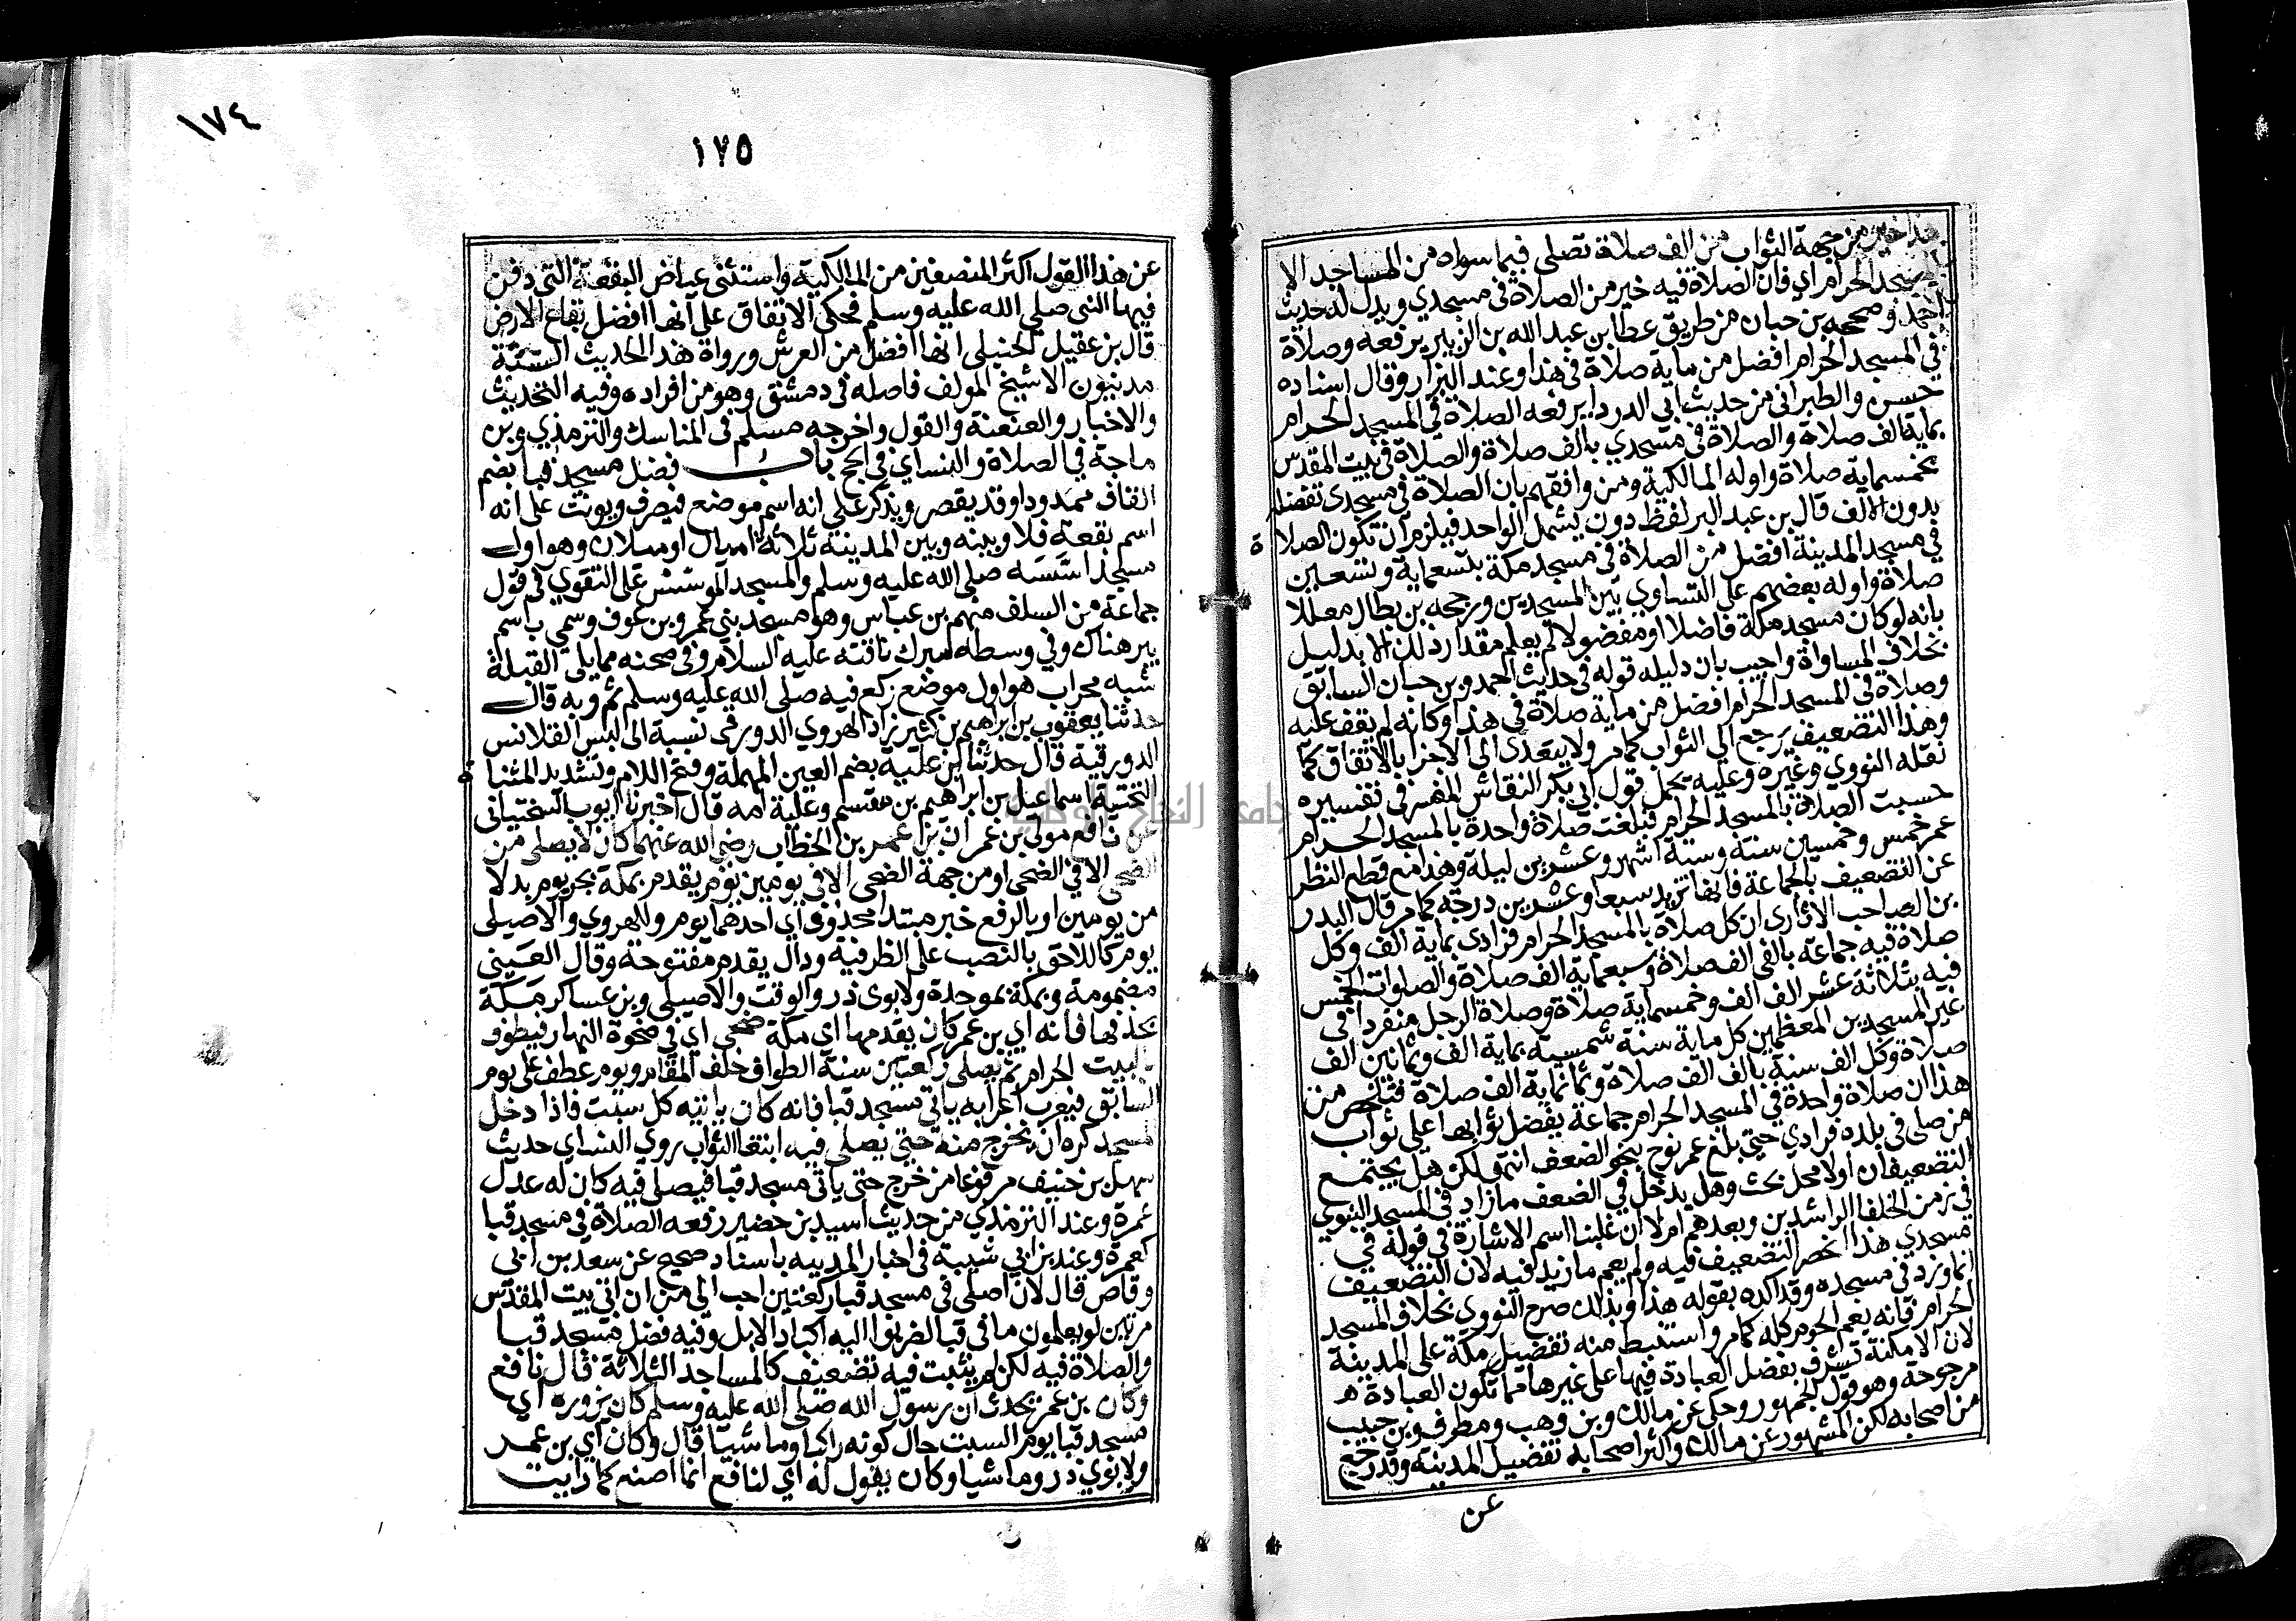 هذا خير من جهة الثواب من الف صلاة تصلى فيما سواه من المساجد الا
المسجد الحرام اي فان الصلاة فيه خير من الصلاة في مسجدي ويدل له حديث
احمد وصححه بن حبان من طريق عطا بن عبد الله بن الزبير يرفعه وصلاة
في المسجد الحرام افضل من ماية صلاة في هذا وعند البزار وقال اسناده
حسن والطبراني من حديث ابي الدردا يرفعه الصلاة في المسجد الحرام
بماية الف صلاة والصلاة في مسجدي بالف صلاة والصلاة في بيت المقدس
بخمسماية صلاة واوله المالكية ومن وافقهم بان الصلاة في مسجدي تفضله
بدون الالف قال بن عبد البر لفظ دون يشمل الواحد فيلزم ان تكون الصلاة
في مسجد المدينة افضل من الصلاة في مسجد مكة بتسعماية وتسعين
صلاة واوله بعضهم على التساوي بين المسجدين ورجحه بن بطال معللا
بانه لو كان مسجد مكة فاضلا او مفضولا لم يعلم مقدار ذلك الا بدليل
بخلاف المساواة واجيب بان دليله قوله في حديث احمد وبن حبان السابق
وصلاة في المسجد الحرام افضل من ماية صلاة في هذا وكانه لم يقف عليه
وهذا التضعيف يرجع الى الثواب كما مر ولا يتعدى الى الاجزا بالاتفاق كما
نقله النووي وغيره وعليه يحمل قول ابي بكر النقاش المفسر في تفسيره
حسبت الصلاة بالمسجد الحرام فبلغت صلاة واحدة بالمسجد الحرام
عمر خمس وخمسين سنة وستة اشهر وعشرين ليلة وهذا مع قطع النظر
عن التضعيف بالجماعة فانها تزيد سبعا وعشرين درجة كما مر قال البدر
بن الصاحب الاثاري ان كل صلاة بالمسجد الحرام فرادى بماية الف وكل
صلاة فيه جماعة بالفي الف صلاة وسبعماية الف صلاة والصلوات الخمس
فيه بثلاثة عشر الف الف وخمسماية صلاة وصلاة الرجل منفردا في
غير المسجدين المعظمين كل ماية سنة شمسية بماية الف وثمانين الف
صلاة وكل الف سنة بالف الف صلاة وثمانماية الف صلاة فتلخص من
هذا ان صلاة واحدة في المسجد الحرام جماعة يفضل ثوابها على ثواب
من صلى في بلده فرادى حتى بلغ عمر نوح بنحو الضعف انتهى لكن هل يجتمع
التضعيفان اولا محل بحث وهل يدخل في الضعف ما زاد في المسجد النبوي
في زمن الخلفا الراشدين وبعدهم ام لا ان غلبنا اسم الاشارة في قوله في
مسجدي هذا انحصر التضعيف فيه ولم يعم ما زيد فيه لان التضعيف
انما ورد في مسجده وقد اكده بقوله هذا وبذلك صرح النووي بخلاف المسجد
الحرام فانه يعم الحرم كله كما مر واستنبط منه تفضيل مكة على المدينة
لان الامكنة تشرف بفضل العبادة فيها على غيرها مما تكون العبادة
مرجوحة وهو قول الجمهور وحكى عن مالك وبن وهب ومطرف وبن حبيب
من اصحابه لكن المشهور عن مالك واكثر اصحابه تفضيل المدينة وقد رجع
عن
١٧٤
١٧٥
عن هذا القول اكثر المنصفين من المالكية واستثنى عياض البقعة التي دفن
فيها النبي صلى الله عليه وسلم فحكى الاتفاق على انها افضل بقاع الارض
قال بن عقيل الحنبلي انها افضل من العرش ورواة هذا الحديث الستة
مدنيون الا شيخ المولف فاصله في دمشق وهو من افراده وفيه التحديث
والاخبار والعنعنة والقول واخرجه مسلم في المناسك والترمذي وبن
ماجة في الصلاة والنساي في الحج باب فضل مسجد قبا بضم
القاف ممدودا وقد يقصر ويذكر على انه اسم موضع فيصرف ويونث على انه
اسم بقعة فلا وبينه وبين المدينة ثلاثة اميال او ميلان وهو اول
مسجد اسسه صلى الله عليه وسلم والمسجد الموسس على التقوى في قول
جماعة من السلف منهم بن عباس وهو مسجد بني عمرو بن عوف وسمي باسم
بير هناك وفي وسطه مبرك ناقته عليه السلام وفي صحنه مما يلي القبلة
شبه محراب هو اول موضع ركع فيه صلى الله عليه وسلم ثم وبه قال
حدثنا يعقوب بن ابراهيم بن كثير زاد الهروي الدورقي نسبة الى لبس القلانس
الدورقية قال حدثنا بن علية بضم العين المهملة وفتح اللام وتشديد المثناة
التحتية اسماعيل بن ابراهيم بن مقسم وعلية امه قال اخبرنا ايوب السختياني
عن نافع مولى بن عمر ان بن عمر بن الخطاب رضي الله عنهما كان لا يصلي من
الضحى الا في الضحى او من جهة الضحى الا في يومين يوم يقدم بمكة بجر يوم بدلا
من يومين او بالرفع خبر مبتدا محذوف اي احدهما يوم وللهروي والاصيلي
يوم كاللاحق بالنصب على الظرفية ودال يقدم مفتوحة وقال العيني
مضمومة وبمكة بموحدة ولابوي ذر والوقت والاصيلي وبن عساكر مكة
بحذفها فانه اي بن عمر كان يقدمها اي مكة ضحى اي في ضحوة النهار فيطوف
بالبيت الحرام ثم يصلي ركعتين سنة الطواف خلف المقام ويوم عطف على يوم
السابق فيعرب اعرابه ياتي مسجد قبا فانه كان ياتيه كل سبت فاذا دخل
المسجد كره ان يخرج منه حتى يصلي فيه ابتغا الثواب روي النساي حديث
سهل بن حنيف مرفوعا من خرج حتى ياتي مسجد قبا فيصلي فيه كان له عدل
عمرة وعند الترمذي من حديث اسيد بن حضير رفعه الصلاة في مسجد قبا
كعمرة وعند بن ابي شيبة في اخبار المدينه باسناد صحيح عن سعد بن ابي
وقاص قال لان اصلي في مسجد قبا ركعتين احب الى من ان اتي بيت المقدس
مرتين لو يعلمون ما في قبا لضربوا اليه اكباد الابل وفيه فضل مسجد قبا
والصلاة فيه لكن لم يثبت فيه تضعيف كالمساجد الثلاثة قال نافع
وكان بن عمر يحدث ان رسول الله صلى الله عليه وسلم كان يزوره اي
مسجد قبا يوم السبت حال كونه راكبا وماشيا قال وكان اي بن عمر
ولابوي ذر وماشيا وكان يقول له اي لنافع انما اصنع كما رايت
جامعة النجاح الوطنية